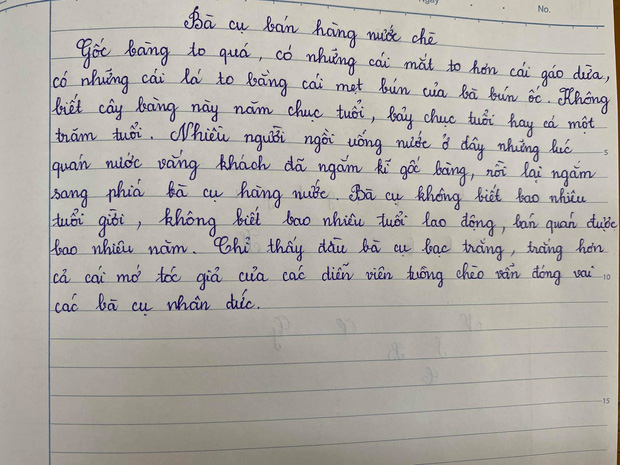 Ngày
No.
Bà cụ bán hàng nước chè
Gốc bàng to quá, có những cái mắt to hơn cái gáo dừa,
có những cái lá to bằng cái mẹt bún của bà bún ốc. Không
biết cây bàng này năm chục tuổi, bảy chục tuổi hay cả một
trăm tuổi. Nhiều người ngồi uống nước ở đây những lúc
5
quán nước vắng khách đã ngắm kĩ gốc bàng, rồi lại ngắm
sang phía bà cụ hàng nước. Bà cụ không biết bao nhiêu
tuổi giời, không biết bao nhiêu tuổi lao động, bán quán được
bao nhiêu năm. Chỉ thấy đầu bà cụ bạc trắng, trắng hơn
cả cái mớ tóc giả của các diễn viên tuồng chèo vẫn đóng vai
10
các bà cụ nhân đức.
15